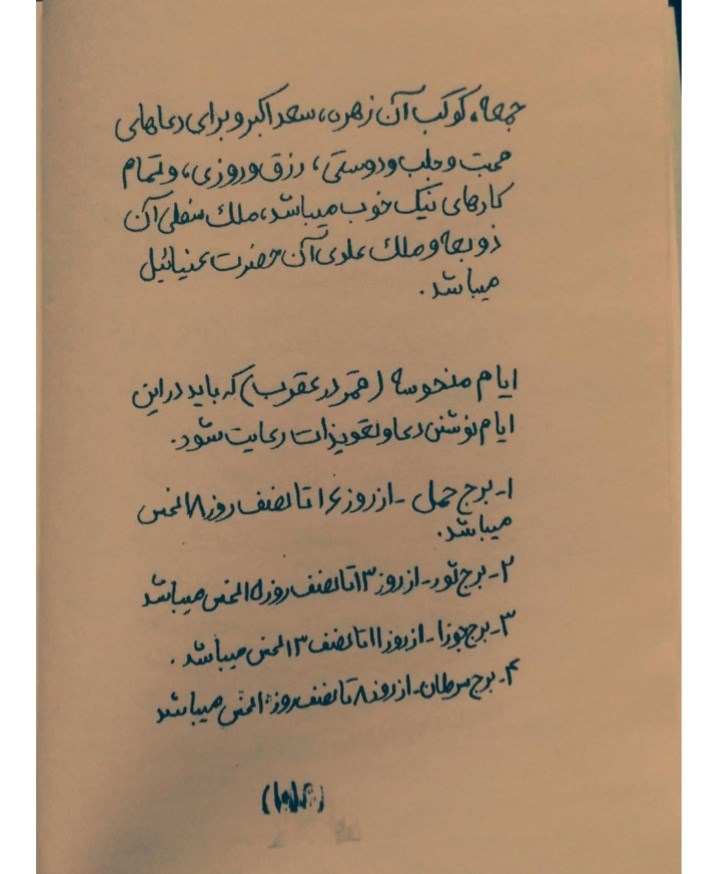 جمعه، کوکب آن زهره، سعد اکبر و برای دعاهای
محبت و جلب و دوستی، رزق و روزی، و تمام
کارهای نیک خوب میباشد، ملك سفلی آن
زوبعه و ملك علوی آن حضرت عنیائیل
میباشد.
ایام منحوسه (قمر در عقرب) که باید در این
ایام نوشتن دعا و تعویذات رعایت شود.
۱- برج حمل - از روز ۱۶ تا نصف روز ۱۸ نحس
میباشد.
۲- برج ثور - از روز ۱۳ تا نصف روز ۱۵ نحس میباشد
۳- برج جوزا - از روز ۱۱ تا نصف ۱۳ نحس میباشد.
۴- برج سرطان - از روز ۸ تا نصف روز ۱۰ نحس میباشد